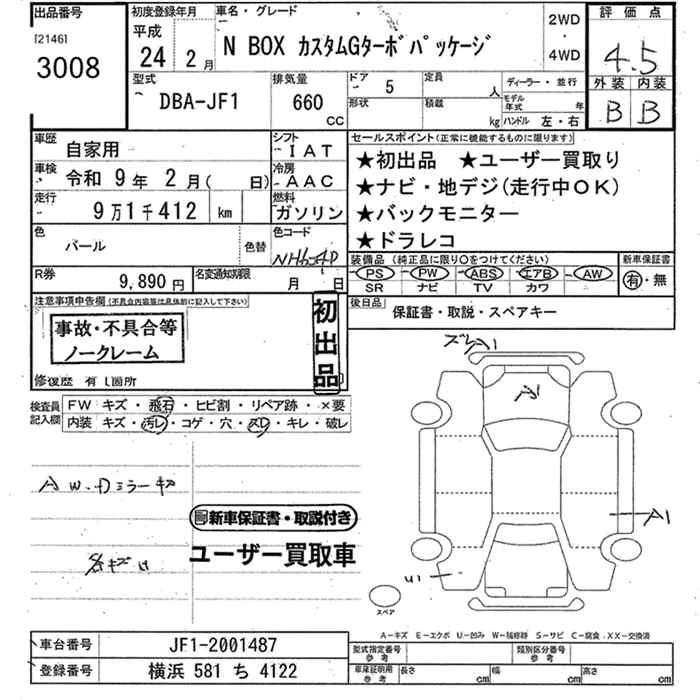 出品番号 初度登録年月 車名・グレード 2WD・4WD 評価点
[2146]
3008
平成 24年 2月
N BOX カスタムGターボパッケージ
4.5
外装 内装
B B
型式 排気量 ドア 5 定員 人 ディーラー・並行
DBA-JF1 660 CC 形状 積載 kg モデル年式 年
ハンドル 左・右
車歴 自家用 シフト IAT
セールスポイント(正常に機能するものに限ります)
車検 令和 9年 2月( 日) 冷房 AAC
★初出品 ★ユーザー買取り
走行 9万1千412 km 燃料 ガソリン
★ナビ・地デジ(走行中OK)
★バックモニター
★ドラレコ
色 パール 色替 色コード
R券 9,890円 名変通知期限 月 日
装備品(純正品に限り○をつけてください) 新車保証書
PS PW ABS エアB AW 有・無
SR ナビ TV カワ
注意事項申告欄(不具合内容等は具体的に記入して下さい)
後日品 保証書・取説・スペアキー
事故・不具合等
ノークレーム
初出品
修復歴 有 し箇所
検査員記入欄 FW キズ・飛石・ヒビ割・リペア跡・×要
内装 キズ・汚レ・コゲ・穴・スレ・キレ・破レ
ズレA1
A1
AW・Dミラーキズ
A1
新車保証書・取説付き
ユーザー買取車
各キズ
U1
スペア
A−キズ E−エクボ U−凹み W−補修跡 S−サビ C−腐食 XX−交換済
車台番号 JF1-2001487 型式指定番号 参考 類別区分番号 参考
登録番号 横浜 581 ち 4122 車庫証明用 参考 長さ cm 幅 cm 高さ cm